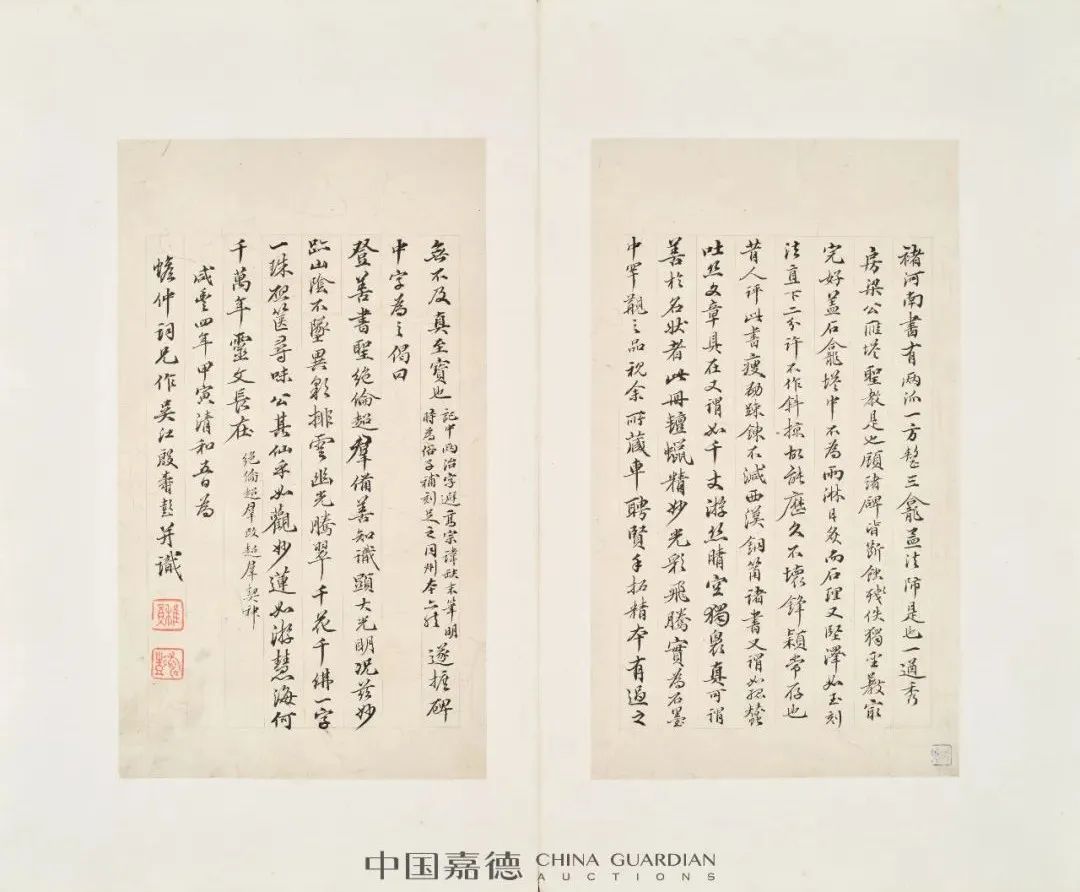 褚河南書有兩派一方整三龕孟法師是也一遒秀
房梁公雁塔聖教是也顧諸碑皆斷蝕殘佚獨聖教最
完好蓋石龕塔中不為雨淋日炙而石理又堅澤如玉刻
法直下二分許不作斜掠故能歷久不壞鋒穎常存也
昔人評此書瘦勁疎鍊不減西漢銅筩諸書又謂如孤蠶
吐絲文章具在又謂如千丈游絲晴空獨裊真可謂
善於名狀者此冊氊蠟精妙光彩飛騰實為石墨
中罕覯之品視余所藏車聘賢手拓精本有過之
無不及真至寶也
記中兩治字避高宗諱缺末筆明
時為俗子補刻足之同州本亦然
遂摭碑
中字為之偈曰
登善書聖絕倫超羣備善知識顯大光明况茲妙
跡山陰不墜異彩排雲幽光騰翠千花千佛一字
一珠啟篋尋味公其仙乎如觀妙蓮如游慧海何
千萬年靈文長在
絕倫超羣改超羣契神
咸豐四年甲寅清和五日為
蟾仲詞兄作吳江殷壽彭并識
中国嘉德 CHINA GUARDIAN
AUCTIONS